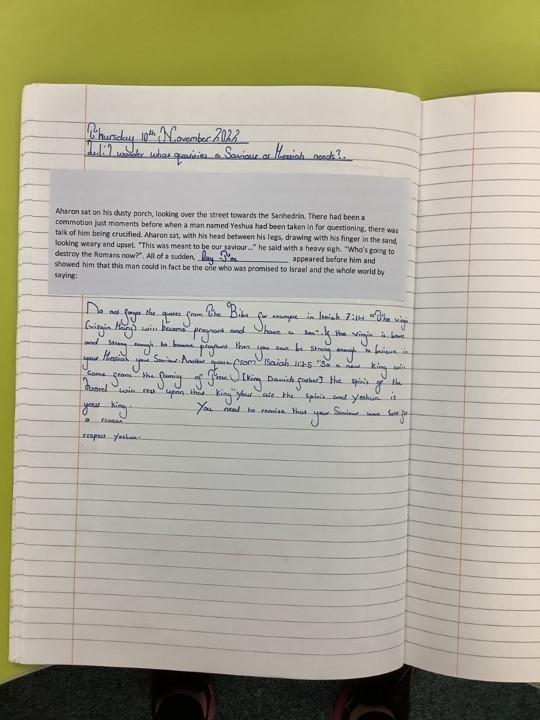 Thursday 10th November 2022
I wonder what qualities a Saviour or Messiah needs?
Aharon sat on his dusty porch, looking over the street towards the Sanhedrin. There had been a
commotion just moments before when a man named Yeshua had been taken in for questioning, there was
talk of him being crucified. Aharon sat, with his head between his legs, drawing with his finger in the sand,
looking weary and upset. "This was meant to be our saviour..." he said with a heavy sigh. "Who's going to
destroy the Romans now?". All of a sudden, appeared before him and
showed him that this man could in fact be the one who was promised to Israel and the whole world by
saying:
Do not forget the quotes from the Bible for example in Isaiah 7:14 "The virgin
(virgin Mary) will become pregnant and have a son". If the virgin is brave
and strong enough to become pregnant then you can be strong enough to believe in
your Messiah your Saviour. Another quote from Isaiah 11:1-5 "So a new King will
come from the family of [King David's father] the spirit of the
will rest upon that King" Your are the spirit and Yeshua is
your King. You need to realise that your Saviour was sent for
a reason
respect Yeshua.